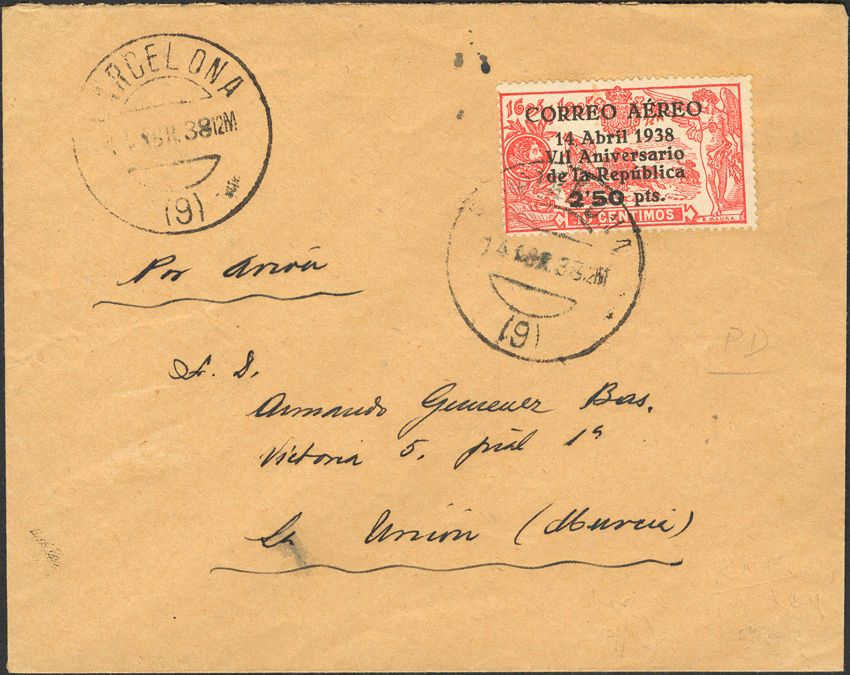 BARCELONA
14 ABR. 38 12M
(9)
1605 1905
CORREO AÉREO
14 Abril 1938
VII Aniversario
de la República
2'50 pts.
10 CENTIMOS
B. MAURA
14 ABR. 38 12M
(9)
Por Avión
S. D.
Armando Gimenez Bas.
Victoria 5. pral 1ª
La Unión (Murcia)
PD